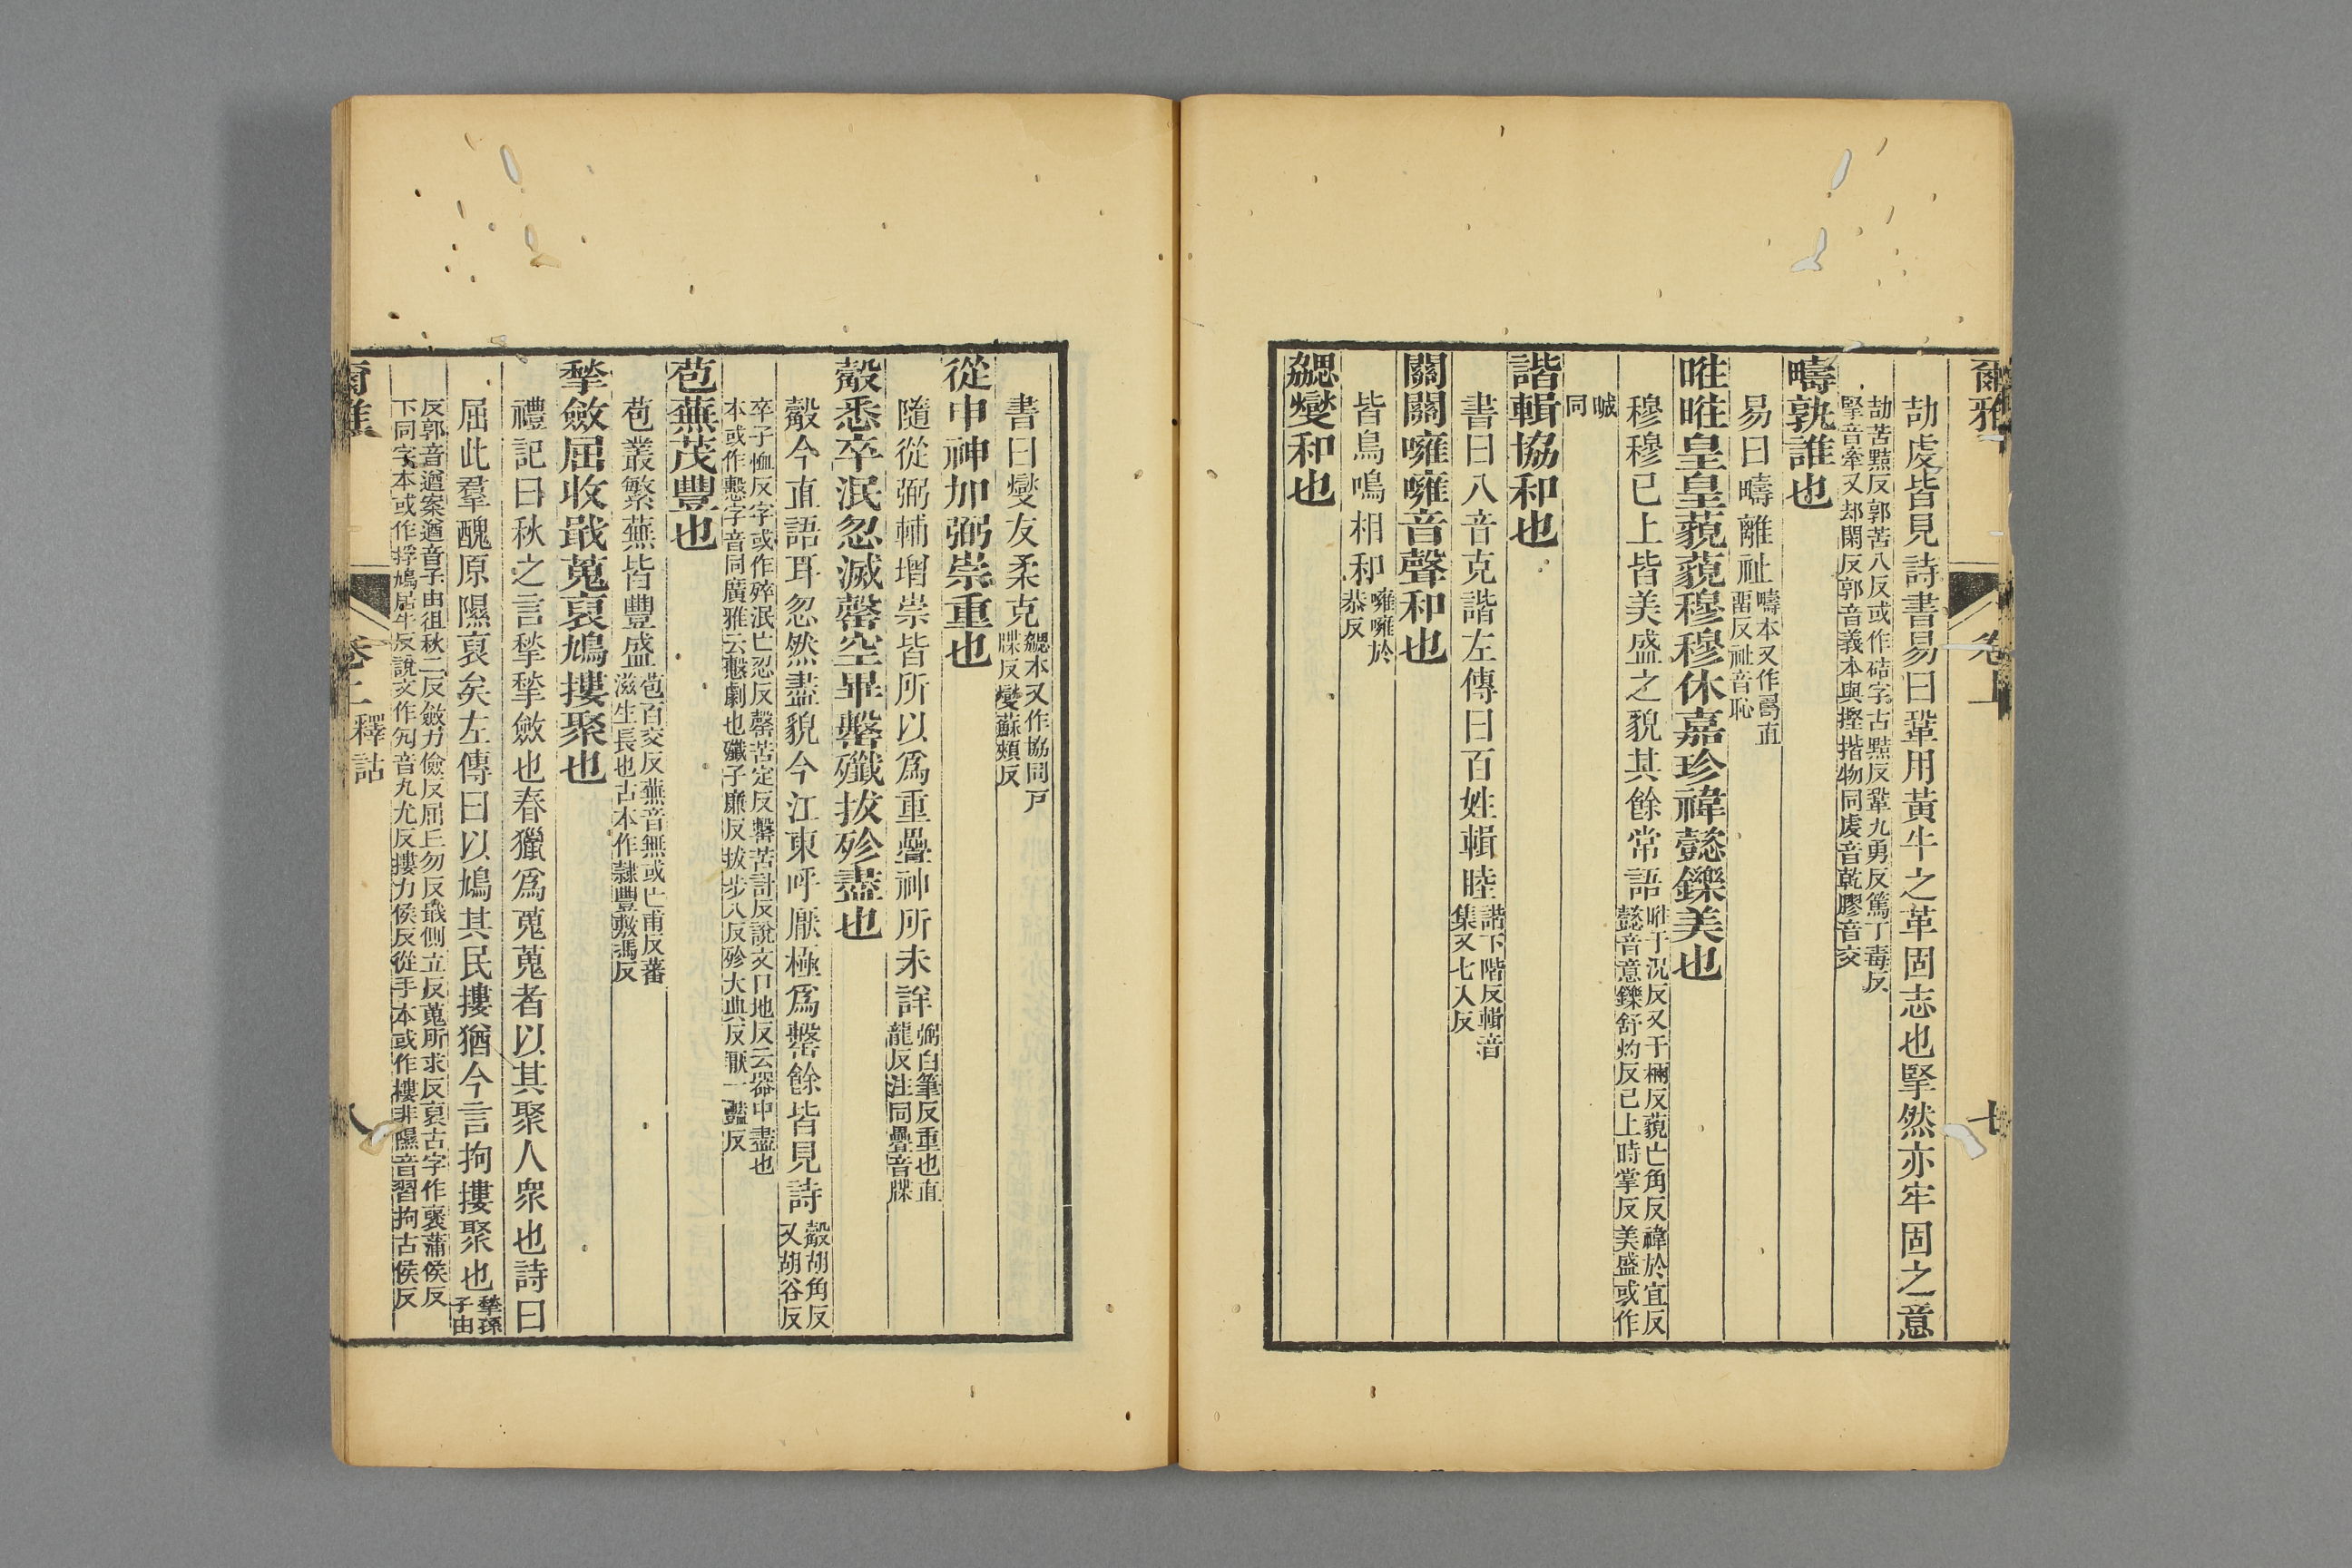 爾雅 卷上 七
劼虔皆見詩書易曰鞏用黃牛之革固志也堅然亦牢固之意
劼苦黠反郭苦八反或作硈字古黠反鞏九勇反篤丁毒反
堅音牽又却閑反郭音義本與掔揩物同虔音乾膠音交
疇孰誰也
易曰疇離祉
疇本又作𠷎直
畱反祉音恥
暀暀皇皇藐藐穆穆休嘉珍禕懿鑠美也
穆穆已上皆美盛之貌其餘常語
暀于況反又于桺反藐亡角反禕於宜反
懿音意鑠舒灼反已上時掌反美盛或作
晠
同
諧輯協和也
書曰八音克諧左傳曰百姓輯睦
諧下階反輯音
集又七入反
關關噰噰音聲和也
皆鳥鳴相和
噰噰於
恭反
勰燮和也
書曰燮友柔克
勰本又作協同戸
牒反燮蘇頰反
從申神加弼崇重也
隨從弼輔增崇皆所以爲重疊神所未詳
弼白筆反重也直
龍反注同疊音牒
觳悉卒泯忽滅罄空畢罊殲拔殄盡也
觳今直語耳忽然盡貌今江東呼厭極爲罊餘皆見詩
觳胡角反
又胡谷反
卒子恤反字或作殚泯亡忍反罄苦定反罊苦計反說文口地反云器中盡也
本或作憗字音同廣雅云憗劇也殲子廉反拔步八反殄大典反厭一豔反
苞蕪茂豐也
苞叢繁蕪皆豐盛
苞百交反蕪音無或亡甫反蕃
滋生長也古本作隷豐敷馮反
揫斂屈收戢蒐裒鳩摟聚也
禮記曰秋之言揫揫斂也春獵爲蒐蒐者以其聚人衆也詩曰
屈此羣醜原隰裒矣左傳曰以鳩其民摟猶今言拘摟聚也
揫孫
子由
反郭音遒案遒音子由徂秋二反斂力儉反屈丘勿反戢側立反蒐所求反裒古字作褎蒲侯反
下同字本或作捊鳩居牛反說文作勼音九尤反摟力侯反從手本或作樓非隰音習拘古侯反
爾雅 卷上 釋詁 八